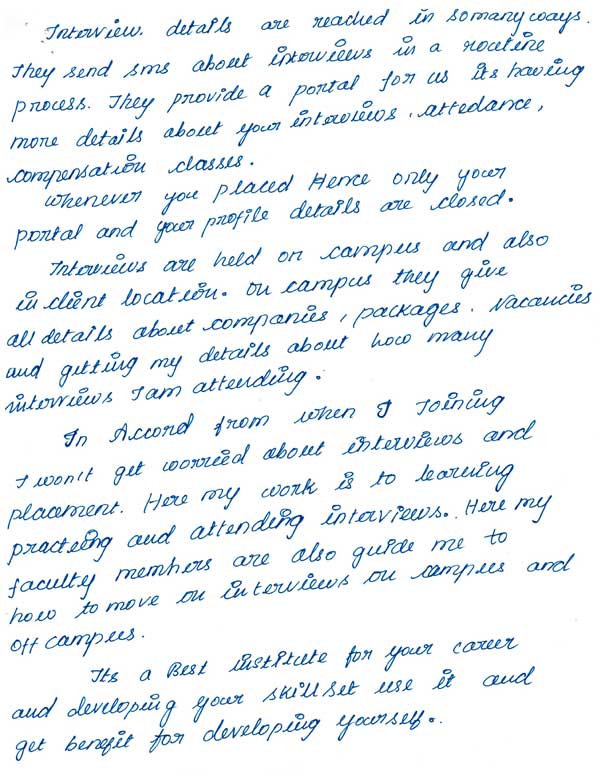 Interview. details are reached in somany ways.
They send sms about interviews in a routine
process. They provide a portal for us its having
more details about your interviews, attedance,
compensation classes.
whenever you placed Hence only your
portal and your profile details are closed.
Interviews are held on campus and also
in client location. On campus they give
all details about companies, packages. Vacancies
and getting my details about how many
interviews I am attending.
In Accord from when I Joining
I won't get worried about interviews and
placement. Here my work is to learning
practeing and attending interviews. Here my
faculty members are also guide me to
how to move on interviews on campus and
off campus.
Its a Best institute for your career
and developing your skillset use it and
get benefit for developing yourself..